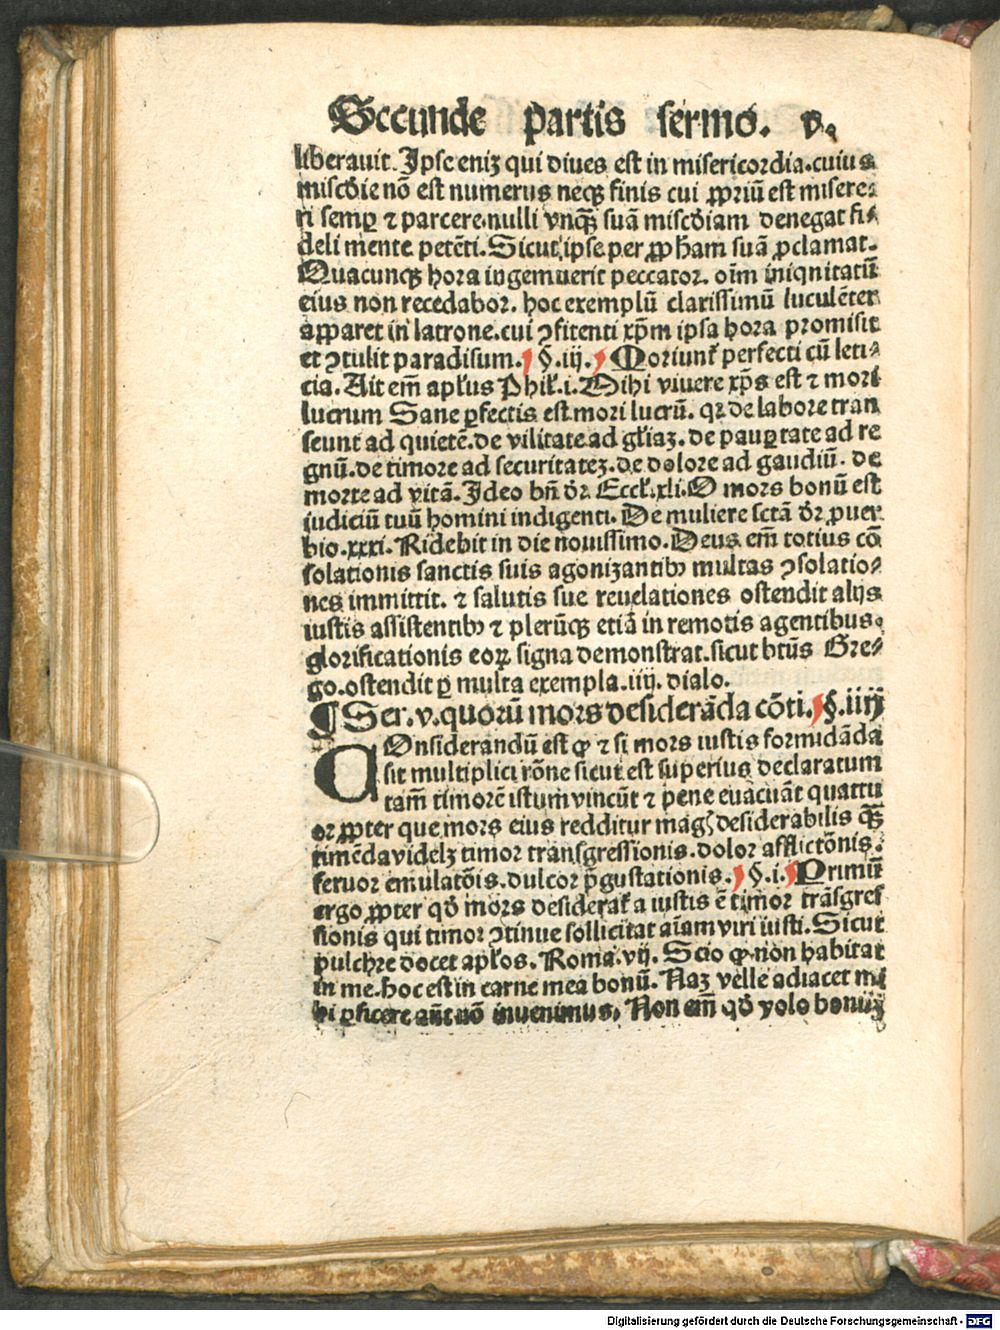 Secunde partis sermo. v.
liberauit. Ipse eniz qui diues est in misericordia.cuius
miscd̄ie nō est numerus neqꝫ finis cui ꝓpriū est misere⸗
ri semꝑ ⁊ parcere.nulli vnqꝫ̄ suā miscd̄iam denegat fi⸗
deli mente petēti. Sicut ipse per ꝓpham suā ꝓclamat.
Quacunqꝫ hora ingemuerit peccator. oīm iniquitatū
eius non recordabor. hoc exemplū clarissimū luculēter
apparet in latrone.cui ꝯfitenti xp̄m ipsa hora promisit
et ꝯtulit paradisum. §.iij. Moriunt᷑ perfecti cū leti⸗
cia. Ait em̄ apl̓us Phil̓.i. Mihi viuere xp̄s est ⁊ mori
lucrum Sane ꝑfectis est mori lucrū. qꝛ de labore tran
seunt ad quietē.de vilitate ad gl̓iaz. de pauꝑtate ad re
gnū.de timore ad securitatez.de dolore ad gaudiū. de
morte ad vitā. Ideo bn̄ dr̄. Eccl̓.xli. O mors bonū est
iudiciū tuū homini indigenti. De muliere sctā dr̄ ꝓuer
bio.xxxi. Ridebit in die nouissimo. Deus em̄ totius cō
solationis sanctis suis agonizantibꝰ multas ꝯsolatio⸗
nes immittit. ⁊ salutis sue reuelationes ostendit alijs
iustis assistentibꝰ ⁊ plerūqꝫ etiā in remotis agentibus.
glorificationis eoꝝ signa demonstrat.sicut btūs Gre⸗
go.ostendit ꝑ multa exempla.iiij. dialo.
¶ Ser. v. quorū mors desiderāda cōti. §.iiij
COnsiderandū est ꝙ ⁊ si mors iustis formidāda
sit multiplici rōne sicut est superius declaratum
tam̄ timorē istum vincūt ⁊ pene euacuāt quattu
or ꝓpter que mors eius redditur magꝭ desiderabilis qꝫ̄
timēda videlꝫ timor transgressionis.dolor afflictōnis.
feruor emulatōis.dulcor p̄gustationis. §.i. Primū
ergo ꝓpter qd̄ mors desiderat᷑ a iustis ē timor trāsgres
sionis qui timor ꝯtinue sollicitat aīam viri iusti. Sicut
pulchre docet apl̓os. Roma. vij. Scio ꝙ non habitat
in me.hoc est in carne mea bonū. Naz velle adiacet mi
hi ꝑficere aūt nō inuenimus. Non em̄ qd̄ volo bonūꝫ
Digitalisierung gefördert durch die Deutsche Forschungsgemeinschaft - DFG